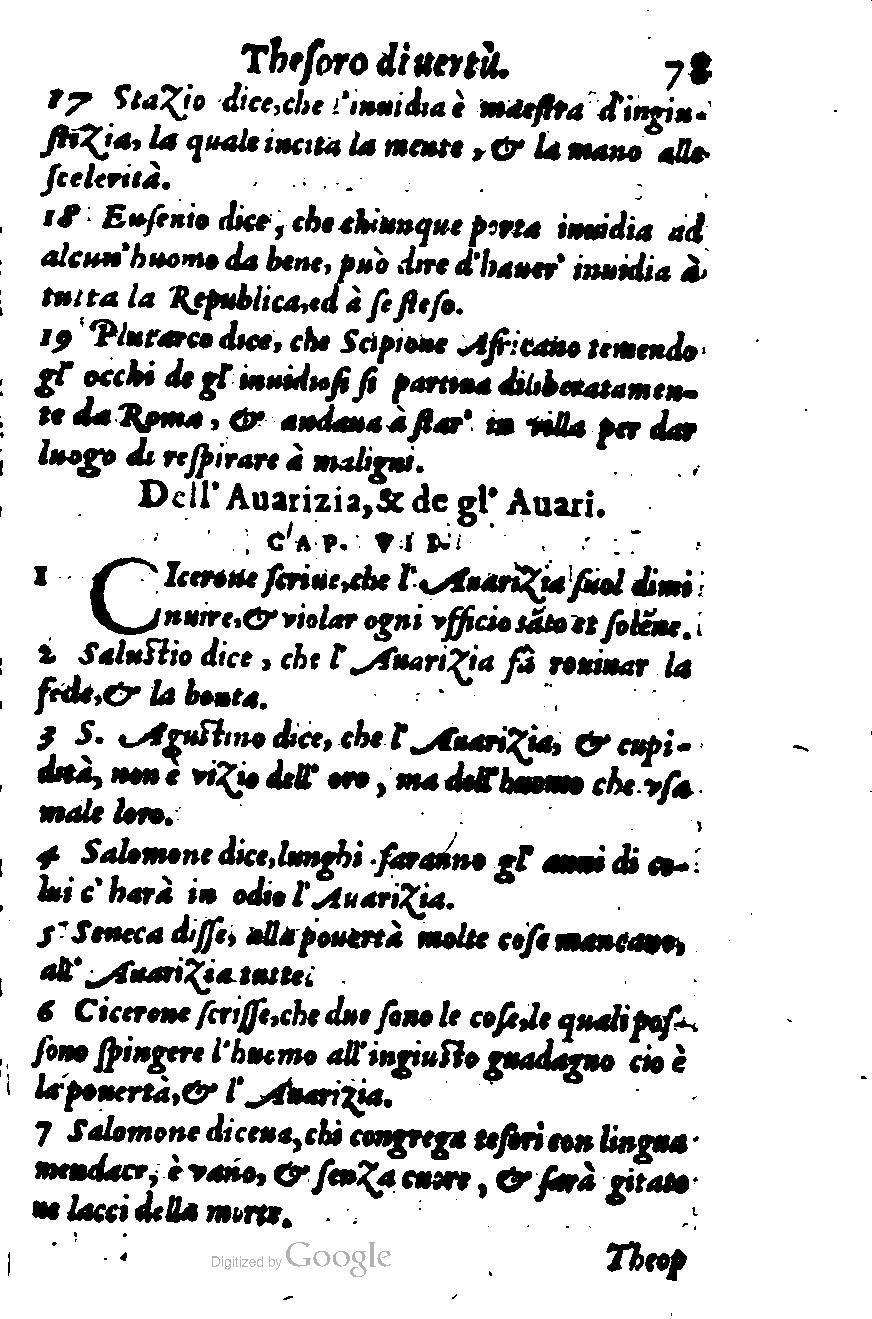 Theſoro di uertù. 78
17 StaZio dice, che l'inuidia è maeſtra d'ingiu-
ſtiZia, la quale incita la mente, & la mano alle
ſcelerità.
18 Euſenio dice, che chiunque porta inuidia ad
alcun'huomo da bene, può dire d'hauer' inuidia à
tutta la Republica, ed à ſe ſteſo.
19 Plutarco dice, che Scipione Africano temendo
gl' occhi de gl' inuidioſi ſi partiua diliberatamen-
te da Roma, & andaua à ſtar' in villa per dar
luogo di reſpirare à maligni.
Dell' Auarizia, & de gl' Auari.
CAP. VII.
1 CIcerone ſcriue, che l' AuariZia ſuol dimi
nuire, & violar ogni vfficio sãto et ſolẽne.
2 Saluſtio dice, che l' AuariZia fà rouinar la
fede, & la bonta.
3 S. Aguſtino dice, che l' AuariZia, & cupi-
dità, non è viZio dell' oro, ma dell'huomo che vſa
male loro.
4 Salomone dice, lunghi faranno gl' anni di co-
lui c' harà in odio l' AuariZia.
5 Seneca diſſe, alla pouertà molte coſe mancano,
all' AuariZia tutte.
6 Cicerone ſcriſſe, che due ſono le coſe, le quali poſ-
ſono ſpingere l'huomo all'ingiuſto guadagno cio è
la pouertà, & l' Auarizia.
7 Salomone diceua, chi congrega teſori con lingua
mendace, è vano, & ſenZa cuore, & ſarà gitato
ne lacci della morte.
Theop
Digitized by Google